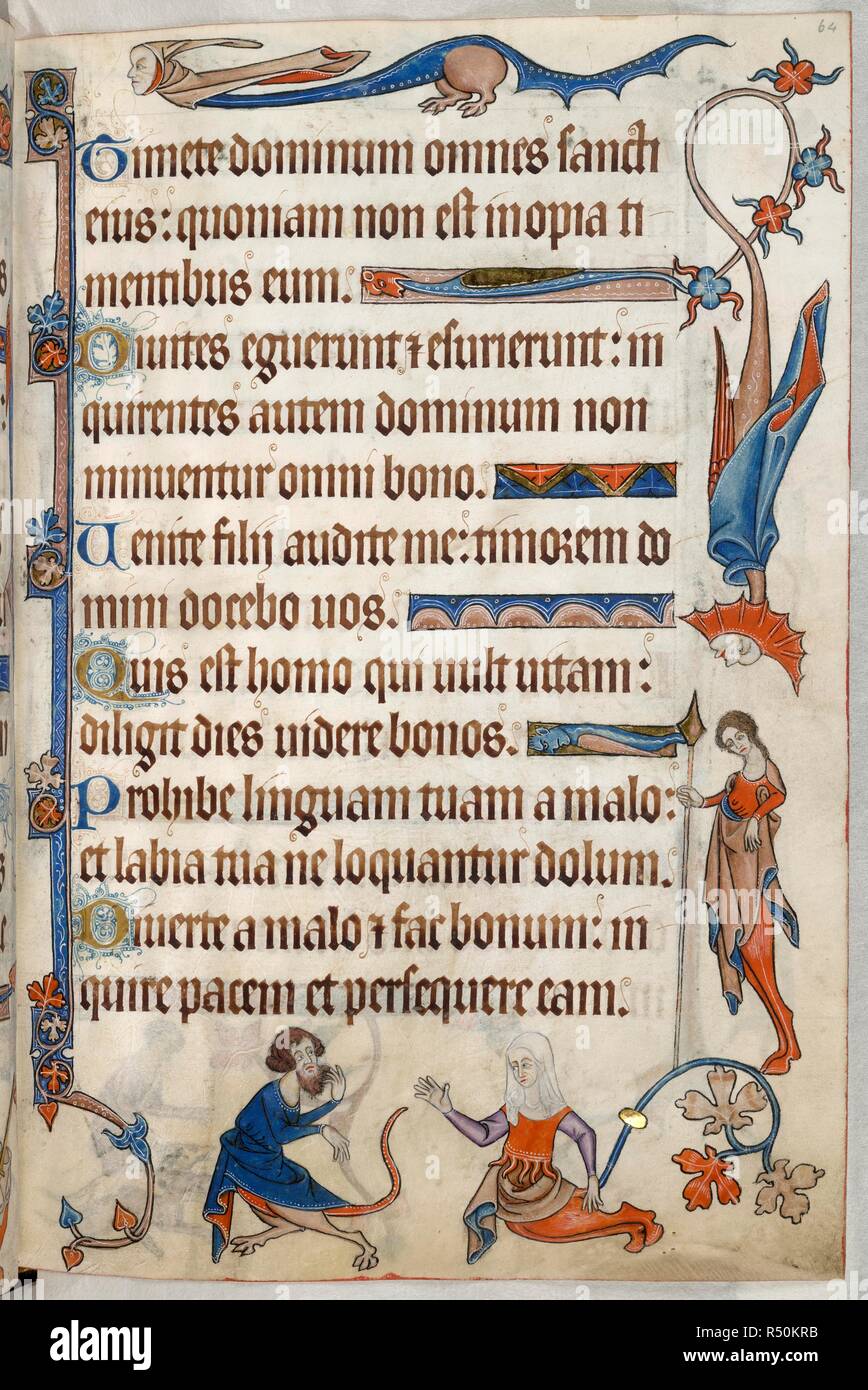 64
Timete dominum omnes sancti
eius: quoniam non est inopia ti
mentibus eum.
Diuites eguerunt ⁊ esurierunt: in
quirentes autem dominum non
minuentur omni bono.
Uenite filij audite me: timorem do
mini docebo uos.
Quis est homo qui uult uitam:
diligit dies uidere bonos.
Prohibe linguam tuam a malo:
et labia tua ne loquantur dolum.
Diuerte a malo ⁊ fac bonum: in
quire pacem et persequere eam.
alamy
alamy stock photo
Image ID: R50KRB
www.alamy.com